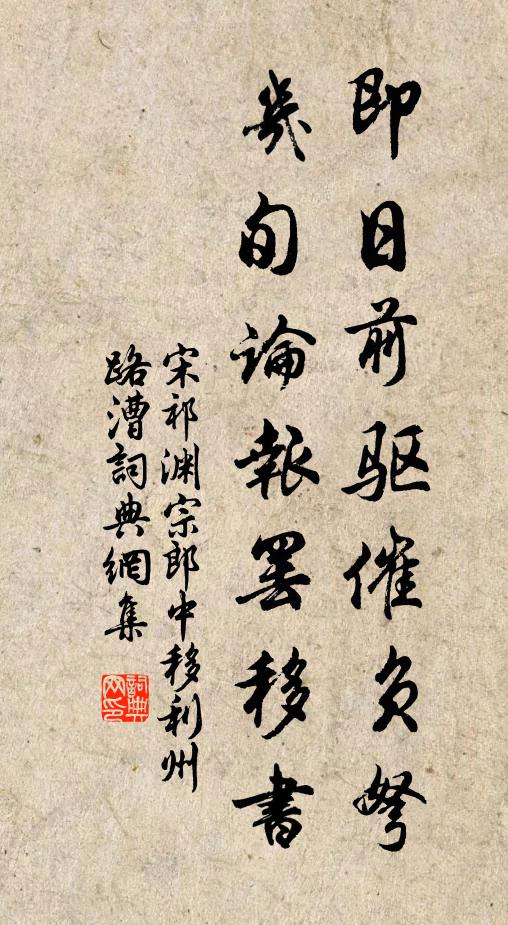 即日前驱催负弩
几旬論報罢移書
宋祁渊宗郎中移利州
路漕詞典網集
詞典
网印